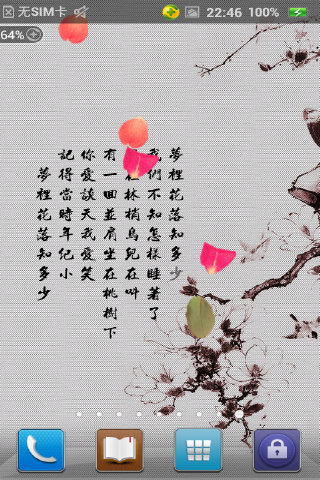 无SIM卡
22:46 100%
64%
夢裡花落知多少
記得當時年紀小
你愛談天我愛笑
有一回並肩坐在桃樹下
在林梢鳥兒在叫
我們不知怎樣睡著了
夢裡花落知多少